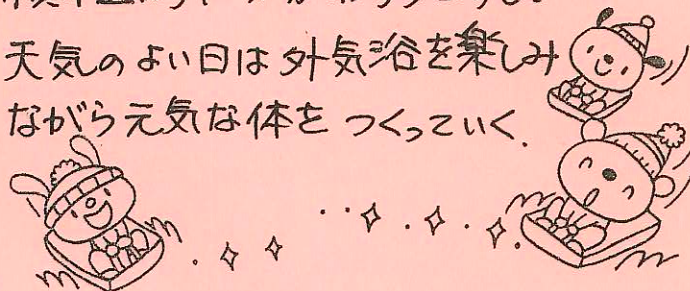 天気のよい日は外気浴を楽しみ
ながら元気な体をつくっていく.